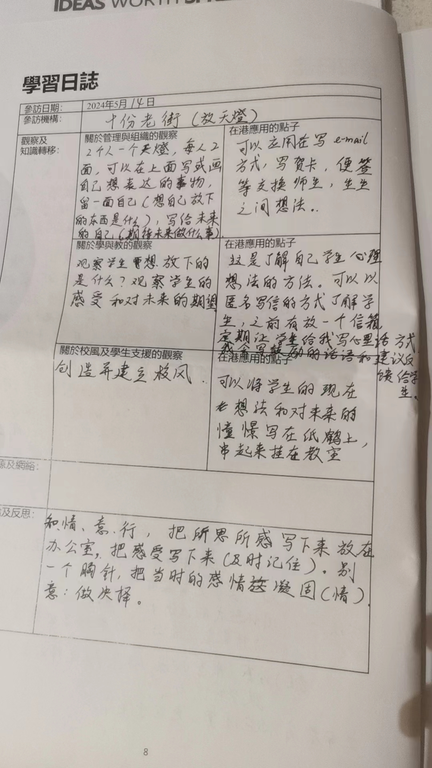 IDEAS WORTH
學習日誌
參訪日期： 2024年5月14日
參訪機構： 十份老街（放天燈）
觀察及
知識轉移：
關於管理與組織的觀察
2个人一个天燈，每人2
面，可以在上面写或画
自己想表达的事物，
留一面自己（想自己放下
的东西是什么），写给未来
的自己（期待未来做什么事）
在港應用的點子
可以应用在写 e-mail
方式，写贺卡，便签
等交换师生，生生
之间想法。
關於學與教的觀察
观察学生想放下的
是什么？观察学生的
感受和对未来的期望
在港應用的點子
这是了解自己学生心理
想法的方法。可以以
匿名写信的方式了解学
生，之前有放一个信箱
定期让学生给我写心里话方式
的话语和建议反
馈给学
生。
關於校風及學生支援的觀察
创造并建立校风．
在港應用的點子
可以将学生的现在
想法和对未来的
憧憬写在纸鹤上，
串起来挂在教室
及網絡：
及反思：
知、情、意、行，把所思所感写下来放在
办公室，把感受写下来（及时记住）。别
一个胸针，把当时的感情凝固（情）．
意：做决择。
8